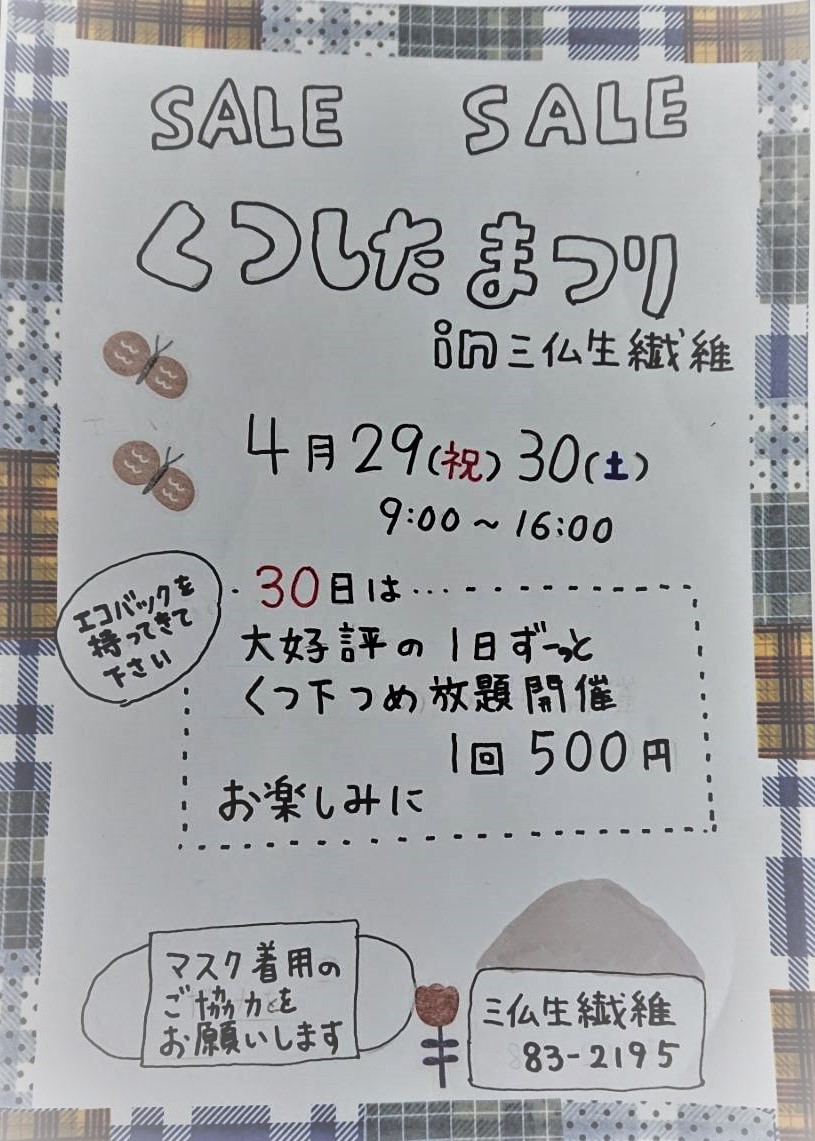 SALE SALE
くつしたまつり
in三仏生繊維
4月29(祝)30(土)
9:00～16:00
エコバックを
持ってきて
下さい
・30日は…
大好評の1日ずーっと
くつ下つめ放題開催
1回500円
お楽しみに
マスク着用の
ご協力を
お願いします
三仏生繊維
83-2195